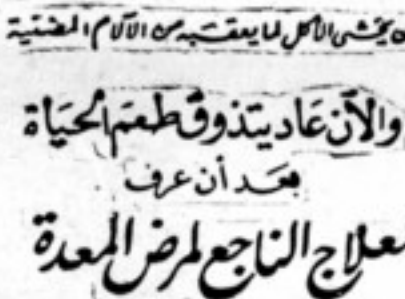 يخشى الأكل لما يعقبه من الآلام المضنية
والآن عاد يتذوق طعم الحياة
بعد أن عرف
علاج الناجع لمرض المعدة